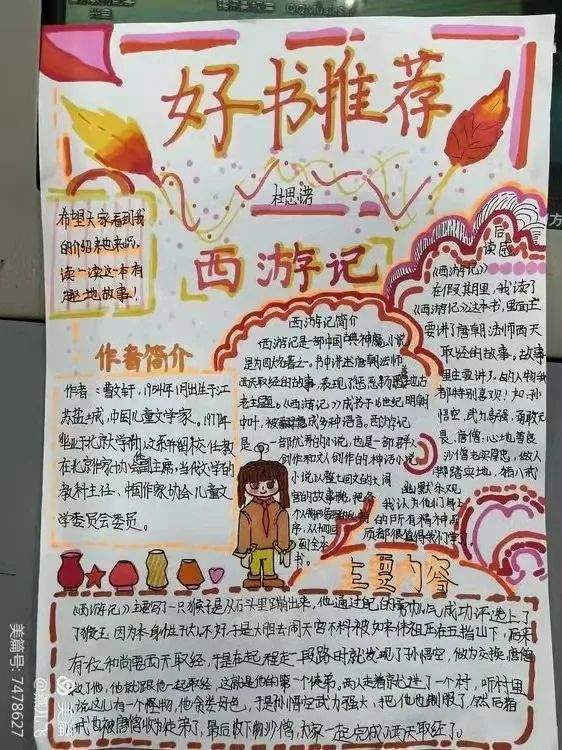 好书推荐
杜思诺
西游记
希望大家看到我
的介绍来
读一读这本有
趣地故事!
作者简介
作者:曹文轩,1954年1月出生于江
苏盐城,中国儿童文学家。1977年
毕业于北京大学 系并留校任教
在北京作家协会副主席,当代文学的
教科主任、中国作家协会儿童文
学委员会委员。
西游记简介
西游记是一部中国 神魔小说
是为四大名著之一。书中讲述唐朝法师
西天取经的故事,表现了惩恶 地古
老主题。《西游记》成书于16世纪明朝
中叶,被 成各种语言。西游记
是一部优秀的小说,也是一部群众
创作和文人创作的神话小说
小说以整 的大闹
宫的故事 把各
后
读感
《西游记》
在假期里,我读了
《西游记》这本书,里面主
要讲了唐朝法师西天
取经的故事。故事
里主要讲了 的人物我
都特别喜欢!如:孙
悟空,武力高强,勇敢无
畏,唐僧,心地善良
沙僧老实厚忠,做人
脚踏实地,猪八戒
幽默乐观
我认为他们身上
的所有精神品
质都很值得我们学习。
主要内容
《西游记》主要写了一只猴子是从石头里蹦出来,他通过自己的勇 气成功评选上了
了猴王,因为本身性子大不好于是大胆去闹天宫不料被如来佛祖压在五指山下,后来
有位和尚 西天取经,于是在起程走一段路时就发现了孙悟空,做为交换,唐僧
救了他,他就跟他一起取经,这就是他的第一个徒弟。两人走着就 进了一个村,听村里
说这儿有一个怪物,他贪恋好色,于是孙悟空武力强大,把他也制服了,然后猪
八戒也被唐僧收为徒弟了,最后收下 沙僧,大家一起完成了西天取经了。
美篇号:7478627
美篇